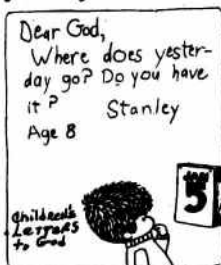 Dear God,
Where does yester-
day go? Do you have
it?
Stanley
Age 8
JAN
5
Children's
Letters
to God